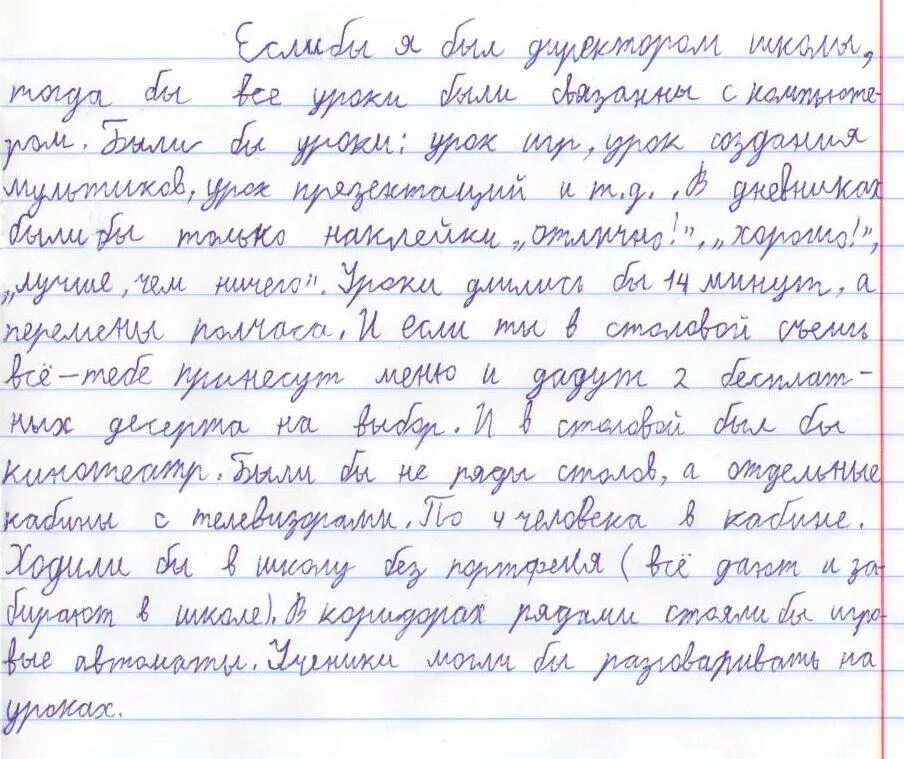 Если бы я был директором школы,
тогда бы все уроки были связанны с компьюте-
ром. Были бы уроки: урок игр, урок создания
мультиков, урок презентаций и т.д.. В дневниках
были бы только наклейки „отлично!", „хорошо!",
„лучше, чем ничего". Уроки длились бы 14 минут, а
перемены полчаса. И если ты в столовой съешь
всё – тебе принесут меню и дадут 2 бесплат-
ных десерта на выбор. И в столовой был бы
кинотеатр. Были бы не ряды столов, а отдельные
кабины с телевизорами. По 4 человека в кабине.
Ходили бы в школу без портфеля (всё дают и за-
бирают в школе). В коридорах рядами стояли бы игро-
вые автоматы. Ученики могли бы разговаривать на
уроках.